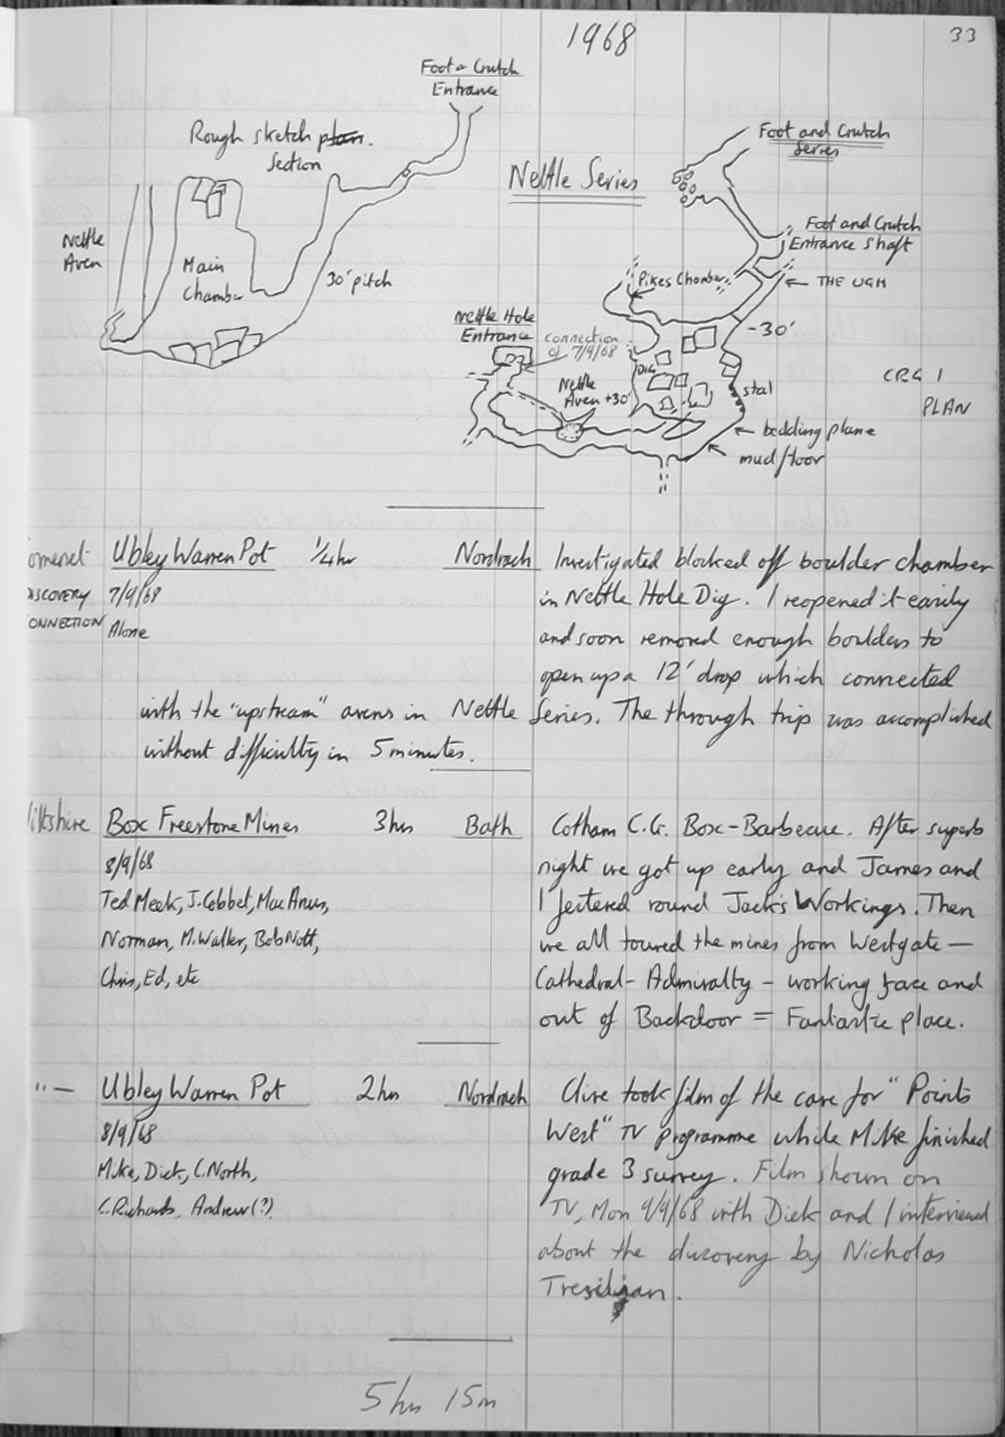 1968
33
Foot & Crutch
Entrance
Rough sketch plan.
Section
Nettle
Aven
Main
Chamber
30' pitch
Nettle Series
Foot and Crutch
Series
Foot and Crutch
Entrance Shaft
THE UGH
Pikes Chamber
-30'
Nettle Hole
Entrance
connection
of 7/9/68
DIG
Nettle
Aven +30'
stal
CRG 1
PLAN
bedding plane
mud floor
omerset Ubley Warren Pot 1/4 hr Nordrach Investigated blocked off boulder chamber
ISCOVERY 7/9/68 in Nettle Hole Dig. I reopened it easily
ONNECTION Alone and soon removed enough boulders to
open up a 12' drop which connected
with the "upstream" avens in Nettle Series. The through trip was accomplished
without difficulty in 5 minutes.
iltshire Box Freestone Mines 3hrs Bath Cotham C.G. Box-Barbecue. After superb
8/9/68 night we got up early and James and
Ted Meek, J. Cobbet, Mac Anus, I feitered round Jack's Workings. Then
Norman, M. Waller, Bob Nott, we all toured the mines from Westgate —
Chris, Ed, etc Cathedral - Admiralty - working face and
out of Backdoor = Fantastic place.
" — Ubley Warren Pot 2hrs Nordrach Clive took film of the cave for "Points
8/9/68 West" TV programme while Mike finished
Mike, Dick, C. North, grade 3 survey. Film shown on
C. Richards, Andrew (?) TV, Mon 9/9/68 with Dick and I interviewed
about the discovery by Nicholas
Tresilian.
5 hrs 15m